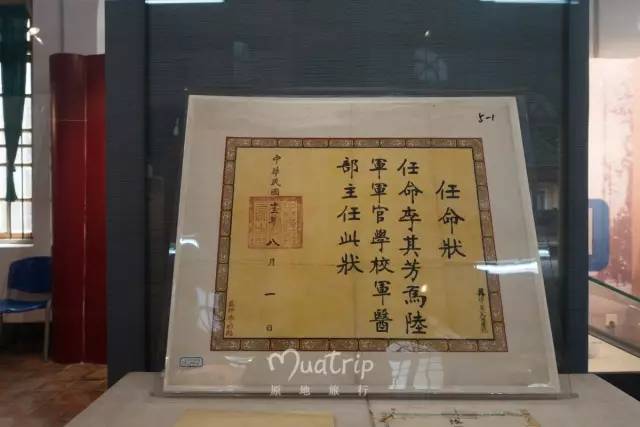 5-1
任命状
任命李其芳爲陸
軍軍官學校軍醫
部主任此狀
中華民國十三年八月一日
Muatrip
原地旅行